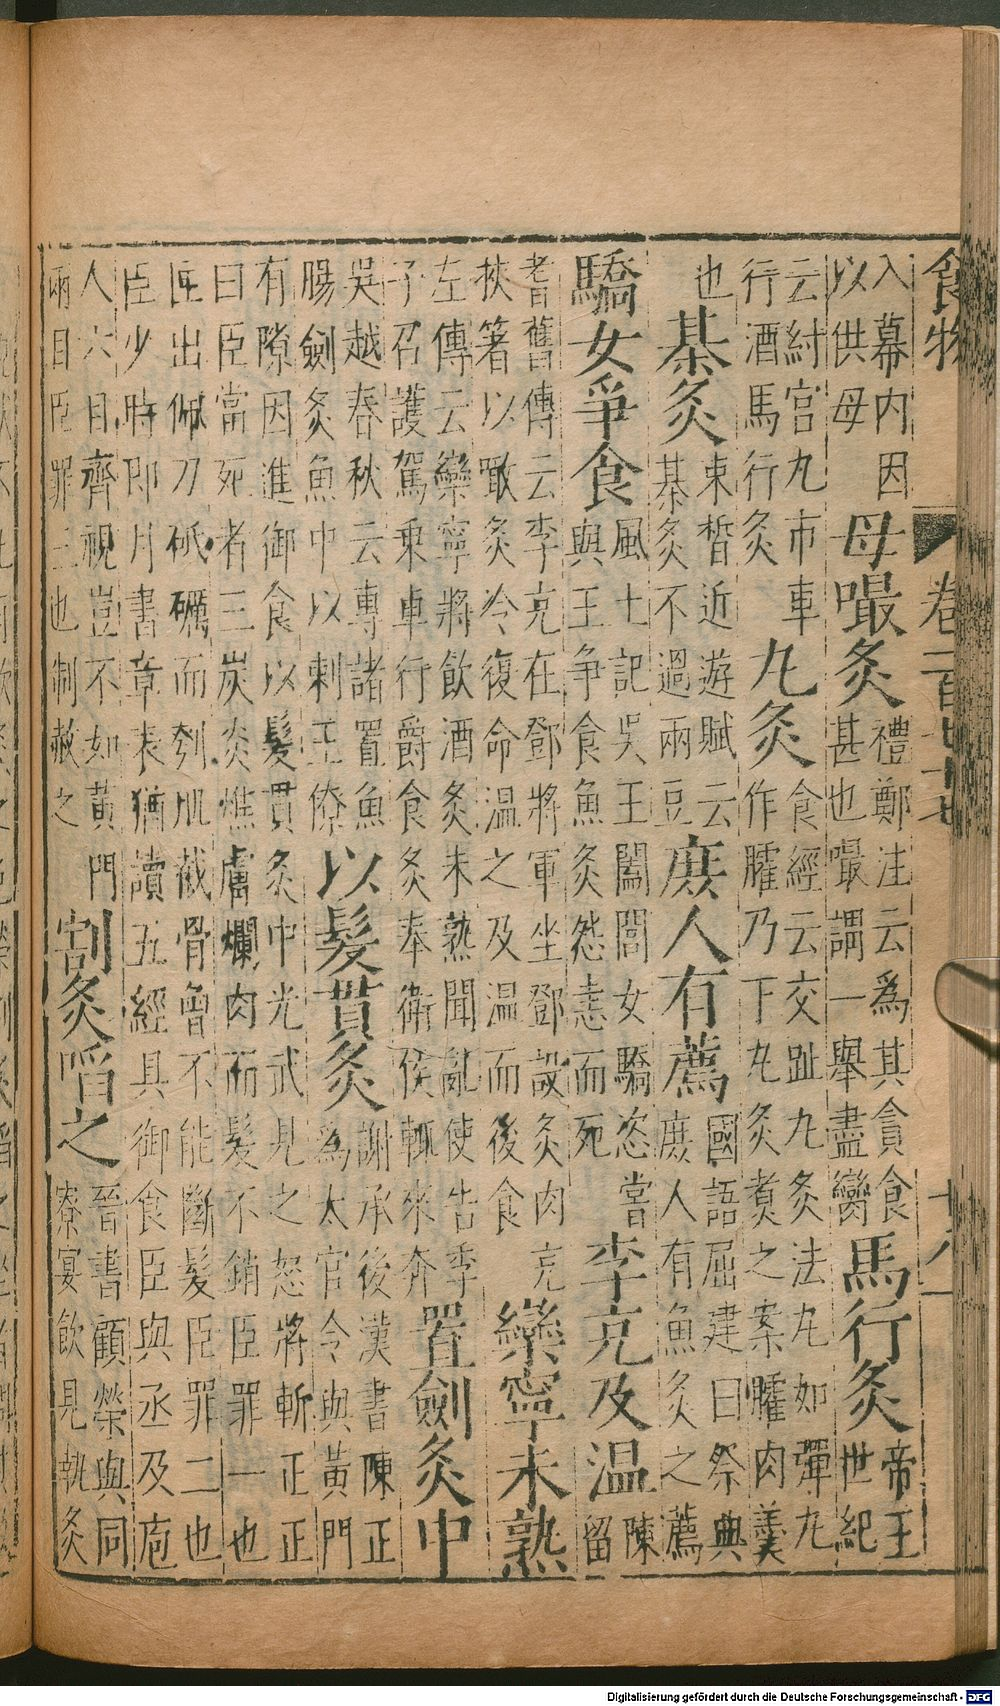 食物　卷一百七十七　十八
入幕内因
以供母
母嘬炙
禮鄭注云爲其貪食
甚也嘬謂一舉盡臠
馬行炙
帝王
世紀
云紂宮九市車
行酒馬行炙
丸炙
食經云交趾丸炙法丸如彈丸
作臛乃下丸炙煮之案臛肉羹
也
棊炙
束晳近遊賦云
棊炙不過兩豆
庶人有薦
國語屈建曰祭典
庶人有魚炙之薦
驕女爭食
風土記吳王闔閭女驕恣嘗
與王爭食魚炙怨恚而死
李充及温
陳
留
耆舊傳云李充在鄧將軍坐鄧設炙肉充
挾箸以啖炙冷復命温之及温而後食
欒寧未熟
左傳云欒寧將飲酒炙未熟聞亂使告季
子召護駕乘車行爵食炙奉衛侯輒來奔
置劍炙中
吳越春秋云專諸置魚
腸劍炙魚中以刺王僚
以髮貫炙
謝承後漢書陳正
爲太官令與黃門
有隙因進御食以髮貫炙中光武見之怒將斬正正
曰臣當死者三炭炎燋膚爛肉而髮不銷臣罪一也
匣出佩刀砥礪而刳肌截骨曾不能斷髮臣罪二也
臣少時即月書章表猶讀五經具御食臣與丞及庖
人六目齊視豈不如黃門
兩目臣罪三也制赦之
割炙啗之
晉書顧榮與同
寮宴飲見執炙
Digitalisierung gefördert durch die Deutsche Forschungsgemeinschaft - DFG